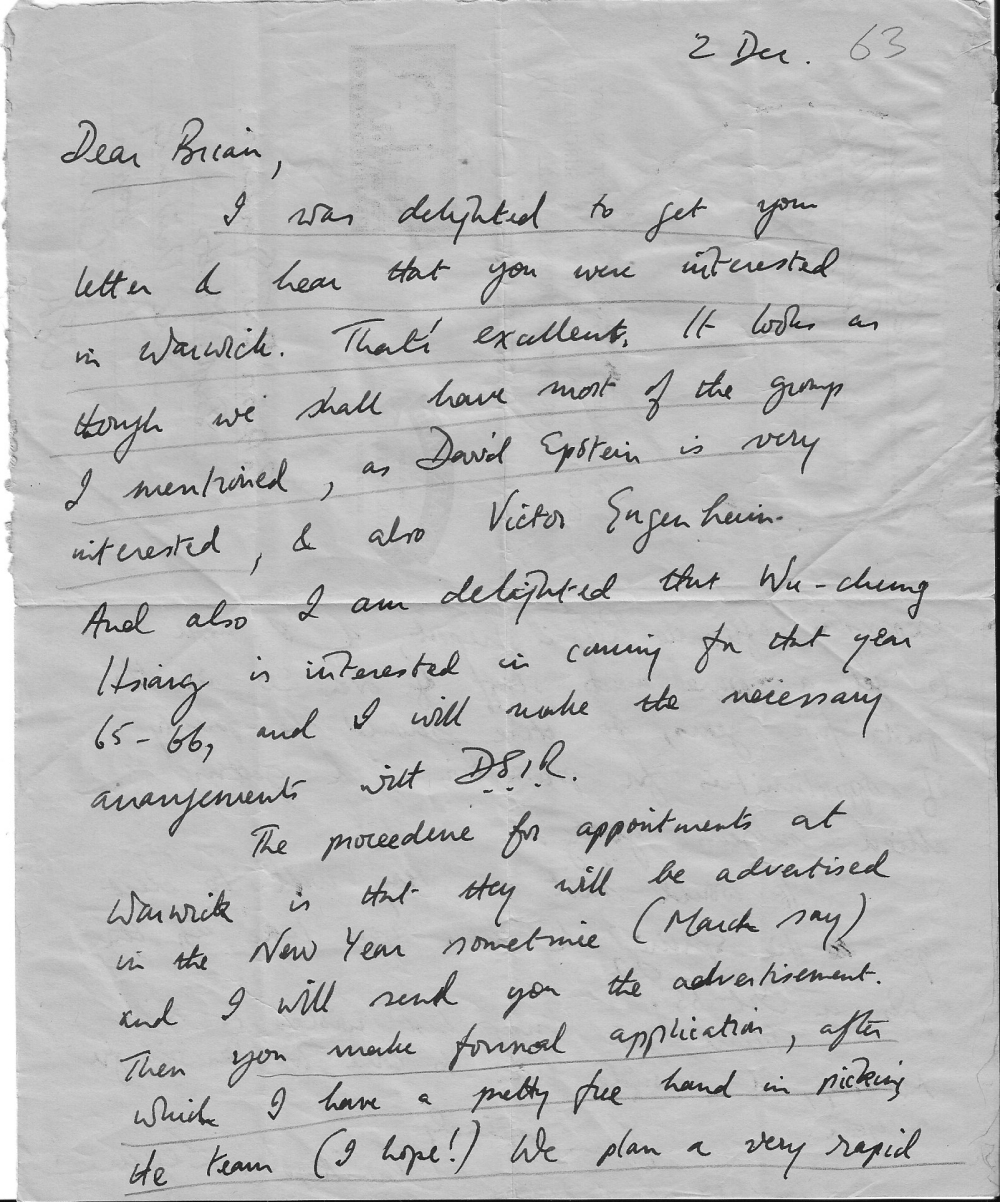 2 Dec. 63
Dear Brian,
I was delighted to get your
letter & hear that you were interested
in Warwick. That's excellent. It looks as
though we shall have most of the group
I mentioned, as David Epstein is very
interested, & also Victor Gugenheim.
And also I am delighted that Wu-chung
Hsiang is interested in coming for that year
65-66, and I will make the necessary
arrangements with D.S.I.R.
The proceedure for appointments at
Warwick is that they will be advertised
in the New Year sometime (March say)
and I will send you the advertisement.
Then you make formal application, after
which I have a pretty free hand in picking
the team (I hope!) We plan a very rapid